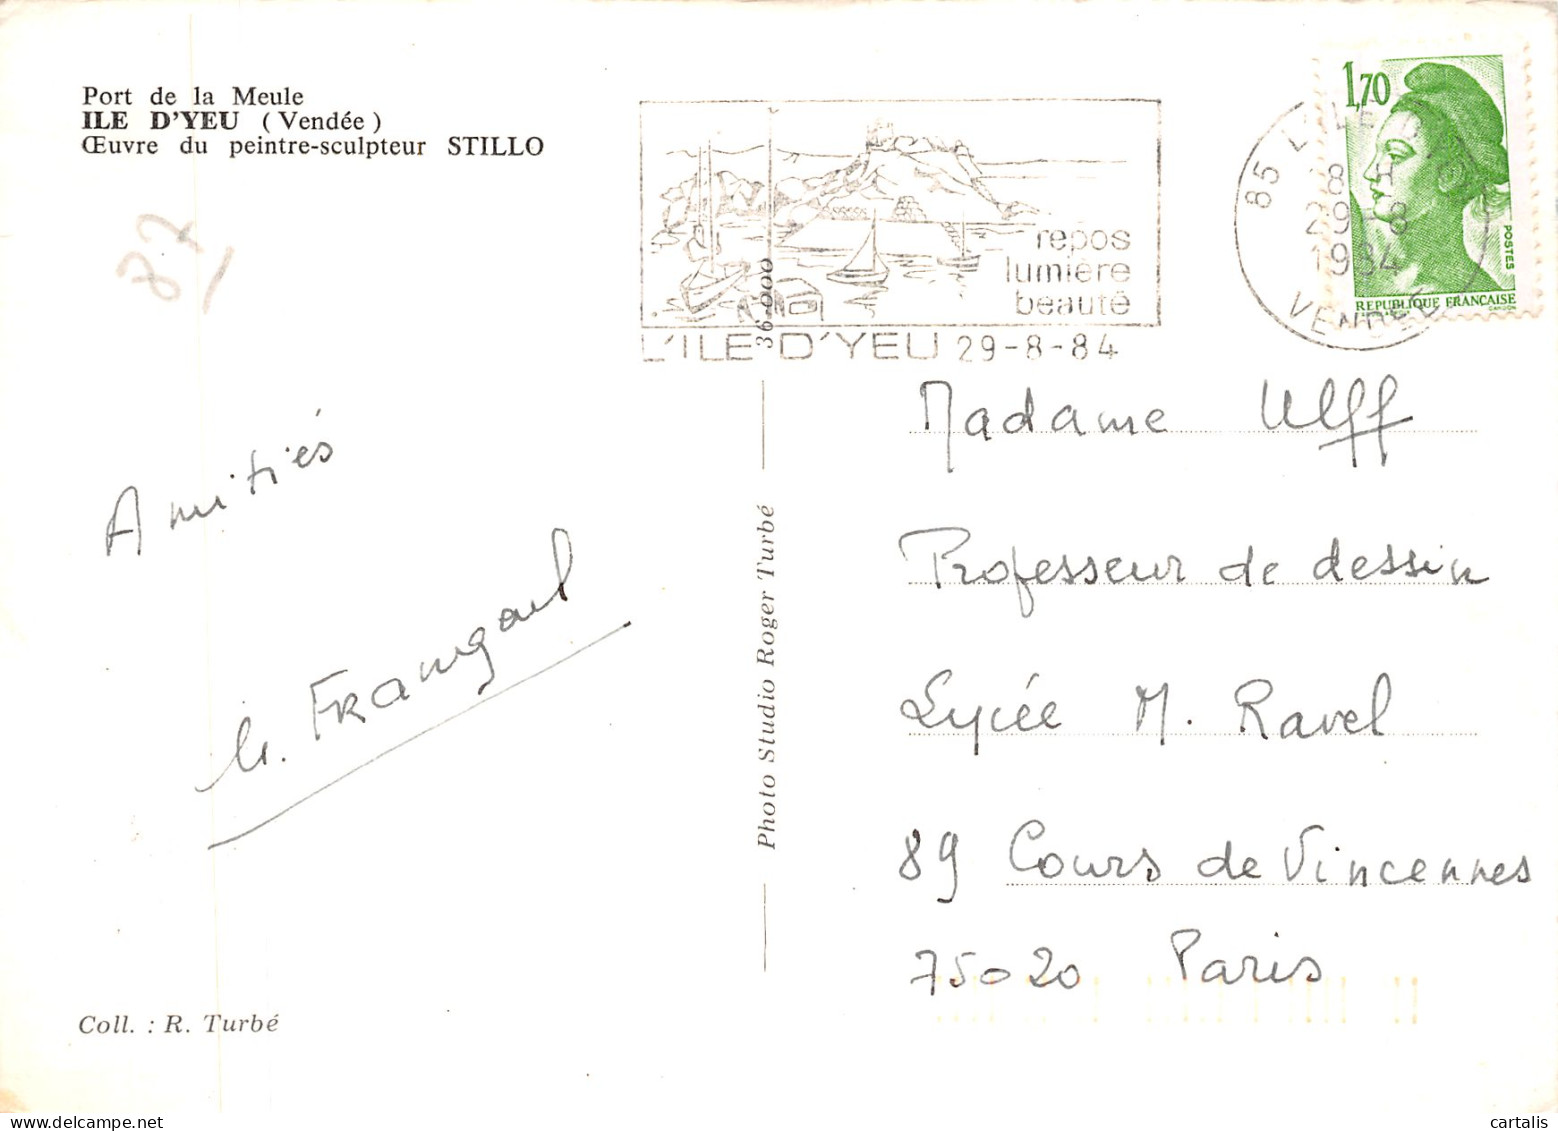 Port de la Meule
ILE D'YEU (Vendée)
Œuvre du peintre-sculpteur STILLO
87
repos
lumière
beauté
L'ILE D'YEU 29-8-84
36.000
85 L'ILE D'YEU
18H
29-8
1984
VENDEE
1,70
POSTES
REPUBLIQUE FRANCAISE
Amitiés
Photo Studio Roger Turbé
Madame Ulff
Professeur de dessin
Lycée M. Ravel
89 Cours de Vincennes
75020 Paris
Coll. : R. Turbé
cartalis